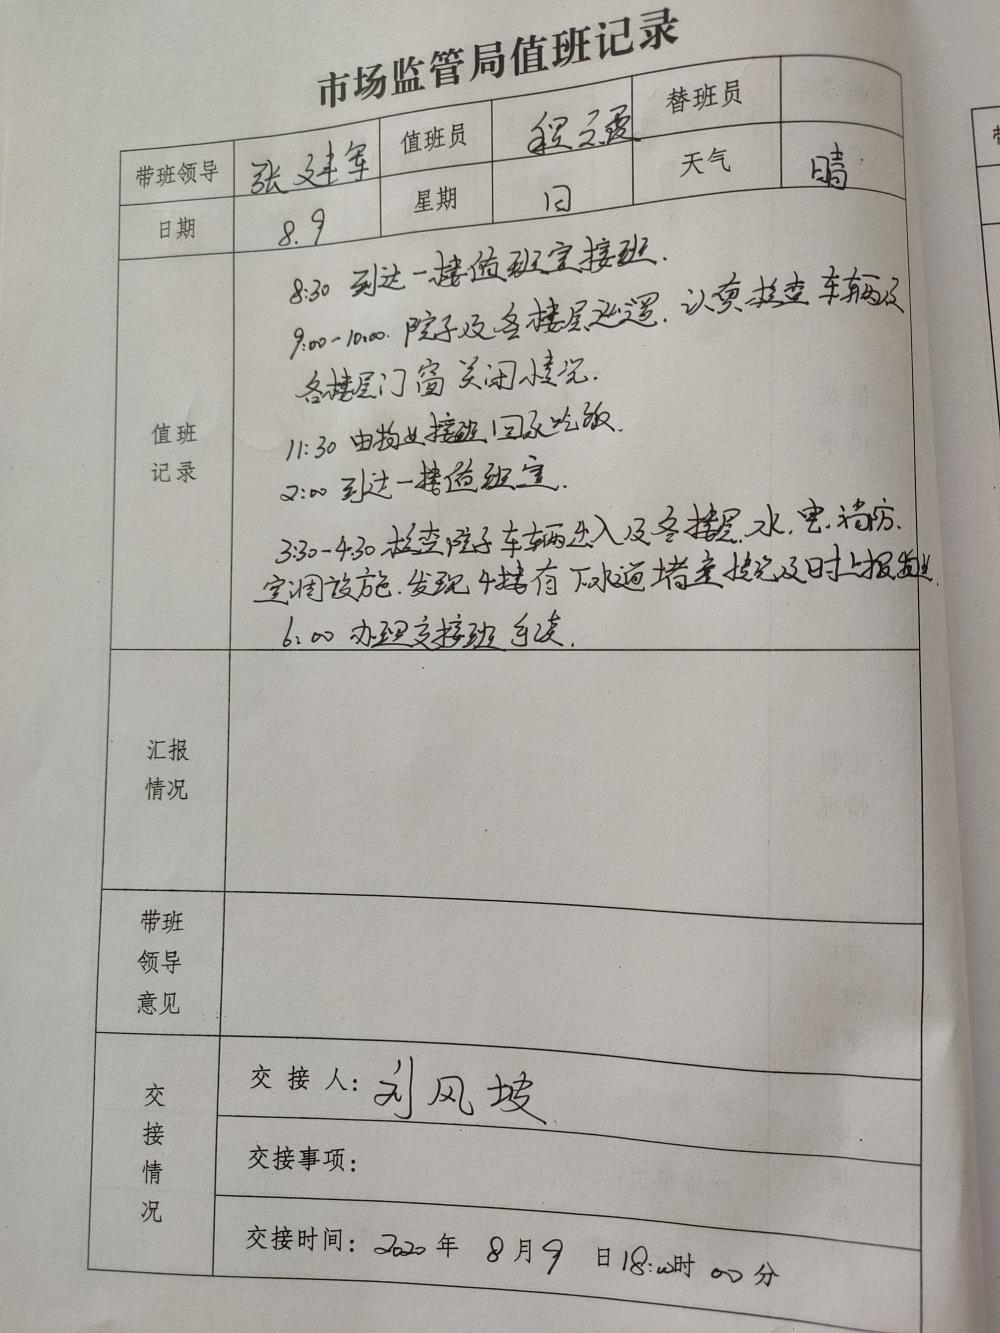 市场监管局值班记录
带班领导 张建军 值班员 程云霞 替班员
日期 8.9 星期 日 天气 晴
值班记录
8:30 到达一楼值班室接班.
9:00-10:00. 院子及各楼层巡逻. 认真检查车辆及
各楼层门窗关闭情况.
11:30 由物业接班回家吃饭.
2:00 到达一楼值班室.
3:30-4:30 检查院子车辆出入及各楼层.水.电.消防.
空调设施.发现4楼有下水道堵塞情况及时上报物业.
6:00 办理交接班手续.
汇报情况
带班领导意见
交接情况
交接人: 刘风坡
交接事项:
交接时间: 2020年 8月9日18:00时 00分